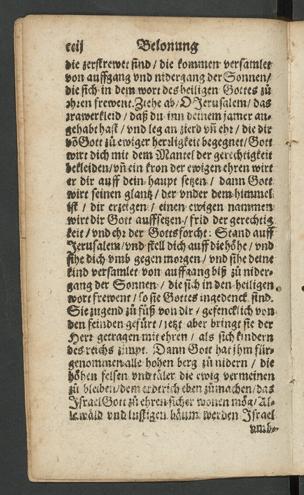 ccij Belonung
die zerstrewet sind / die kommen versamlet
von auffgang vnd nidergang der Sonnen /
die sich in dem wort des heiligen Gottes zů
jhren frewent. Ziehe ab / O Jerusalem / das
trawerkleid / daß du inn deinem jamer an-
gehabt hast / vnd leg an zierd vñ ehr / die dir
vō Gott zů ewiger herzligkeit begegnet / Gott
wirt dich mit dem Mantel der gerechtigkeit
bekleiden / vñ ein kron der ewigen ehren wirt
er dir auff dein haupt setzen / dann Gott
wirt seinen glantz / der vnder dem himmel
ist / dir erzeigen / einen ewigen nammen
wirt dir Gott auffsetzen / frid der gerechtig
keit / vnd ehr der Gottsforcht: Stand auff
Jerusalem / vnd stell dich auff die höhe / vnd
sihe dich vmb gegen morgen / vnd sihe deine
kind versamlet von auffgang biß zů nider-
gang der Sonnen / die sich in den heiligen
wort frewent / so sie Gottes ingedenck sind.
Sie zugend zů fůß von dir / gefencklich von
den feinden gefürt / jetzt aber bringt sie der
Herr getragen mit ehren / als sich kindern
des reichs zimpt. Dann Gott hat jhm für-
genommen alle hohen berg zů nidern / die
höhen felsen vnd täler die ewig vermeinen
zů bleiben / dem erdtrich eben zů machen / das
Israel Gott zů ehren sicher wonen mög / Al-
le wäld vnd lustigen böum werden Israel
vmb-